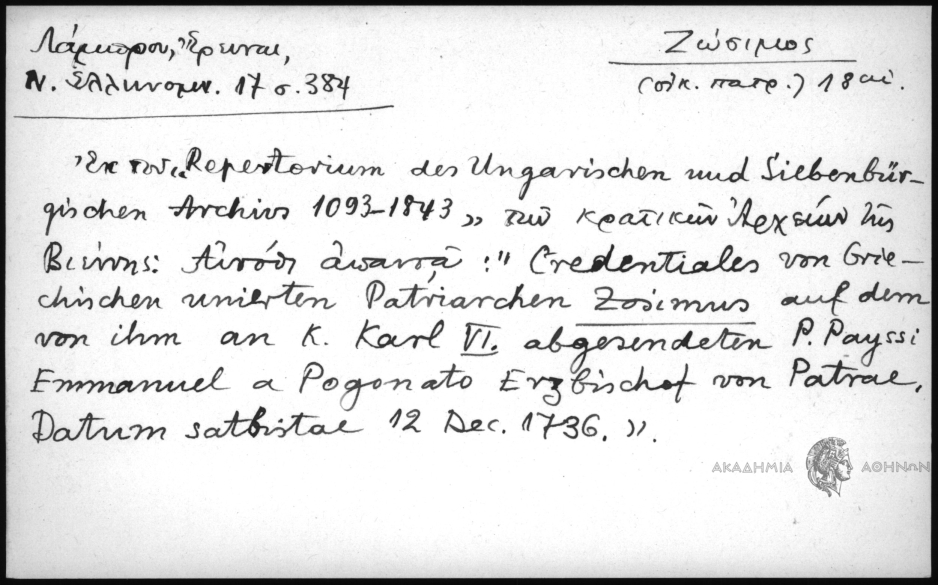 Λάμπρου, Ἔρευναι,
Ν. Ἑλληνομν. 17 σ. 384
Ζώσιμος
(οἰκ. πατρ.) 18 αἰ.
Ἐκ τοῦ „Repertorium des Ungarischen und Siebenbür-
gischen Archivs 1093-1843” τῶν κρατικῶν Ἀρχείων τῆς
Βιέννης: ἀπαντᾷ :" Credentiales von Grie-
chischen unierten Patriarchen Zosimus auf dem
von ihm an K. Karl VI. abgesendeten P. Payssi
Emmanuel a Pogonato Erzbischof von Patrae.
Datum satbistae 12 Dec. 1736.».
ΑΚΑΔΗΜΙΑ ΑΘΗΝΩΝ